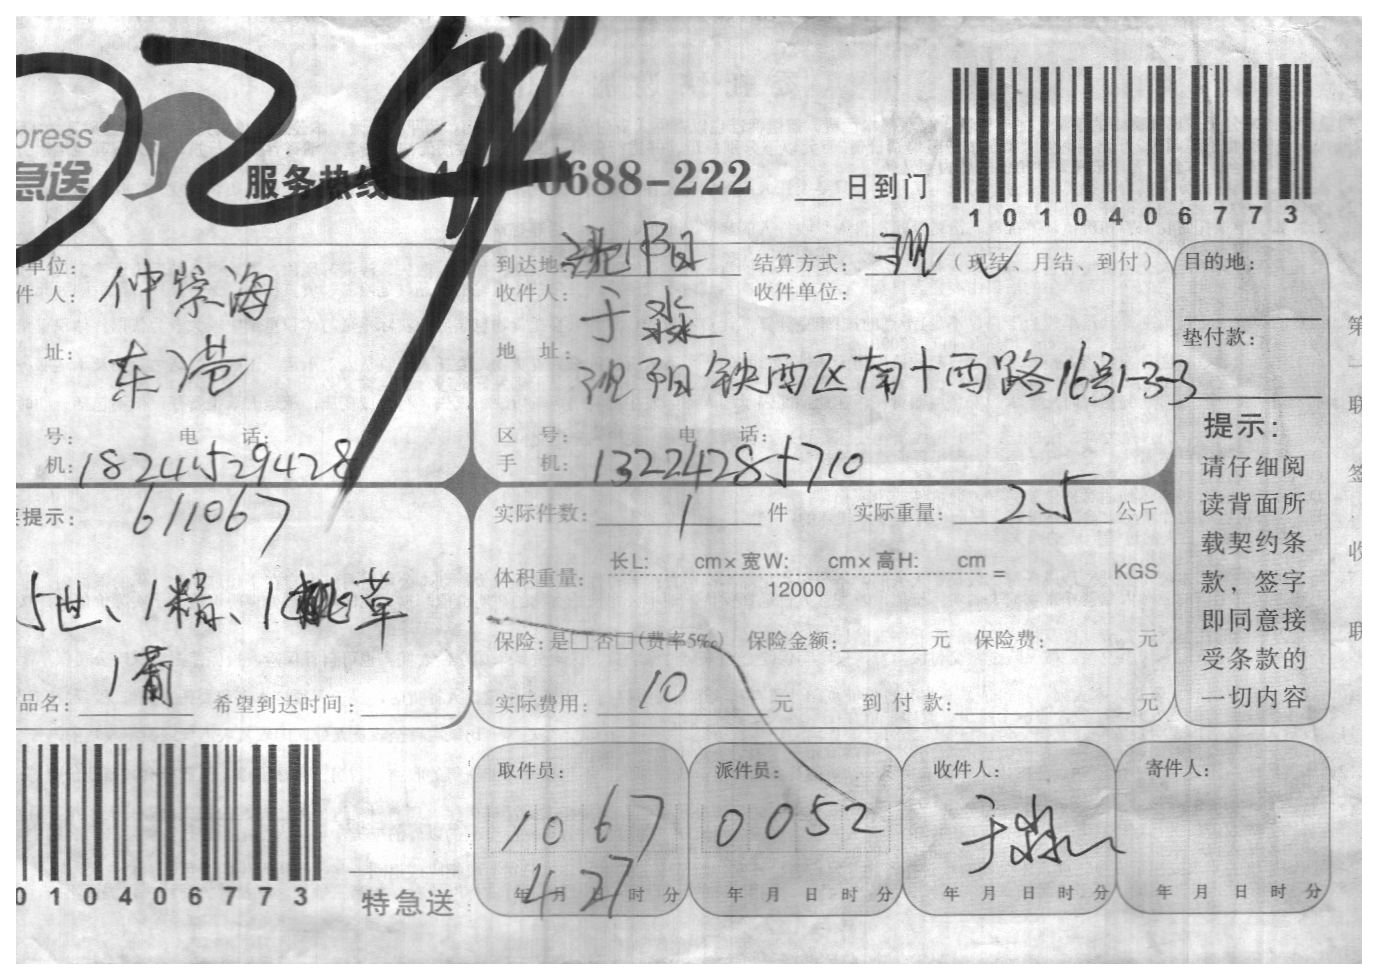 press
急送
服务热线
0688-222
日到门
1010406773
单位:
件 人: 仲崇海
址: 东港
号: 电 话:
机: 18241529428
到达地: 沈阳
结算方式: 现 (现结、月结、到付)
收件人: 于淼
收件单位:
地 址: 沈阳铁西区南十西路16号1-3-3
区 号: 电 话:
手 机: 13224285710
目的地:
垫付款:
提示:
请仔细阅
读背面所
载契约条
款，签字
即同意接
受条款的
一切内容
提示: 611067
5世、1精、1桃草
1葡
品名: 希望到达时间:
实际件数: 1 件 实际重量: 2.5 公斤
体积重量: 长L: cm×宽W: cm×高H: cm = KGS
12000
保险: 是□否□(费率5‰) 保险金额: 元 保险费: 元
实际费用: 10 元 到付款: 元
010406773
特急送
取件员:
1067
4 27
年 月 日 时 分
派件员:
0052
年 月 日 时 分
收件人:
于淼
年 月 日 时 分
寄件人:
年 月 日 时 分
第一联 签收联